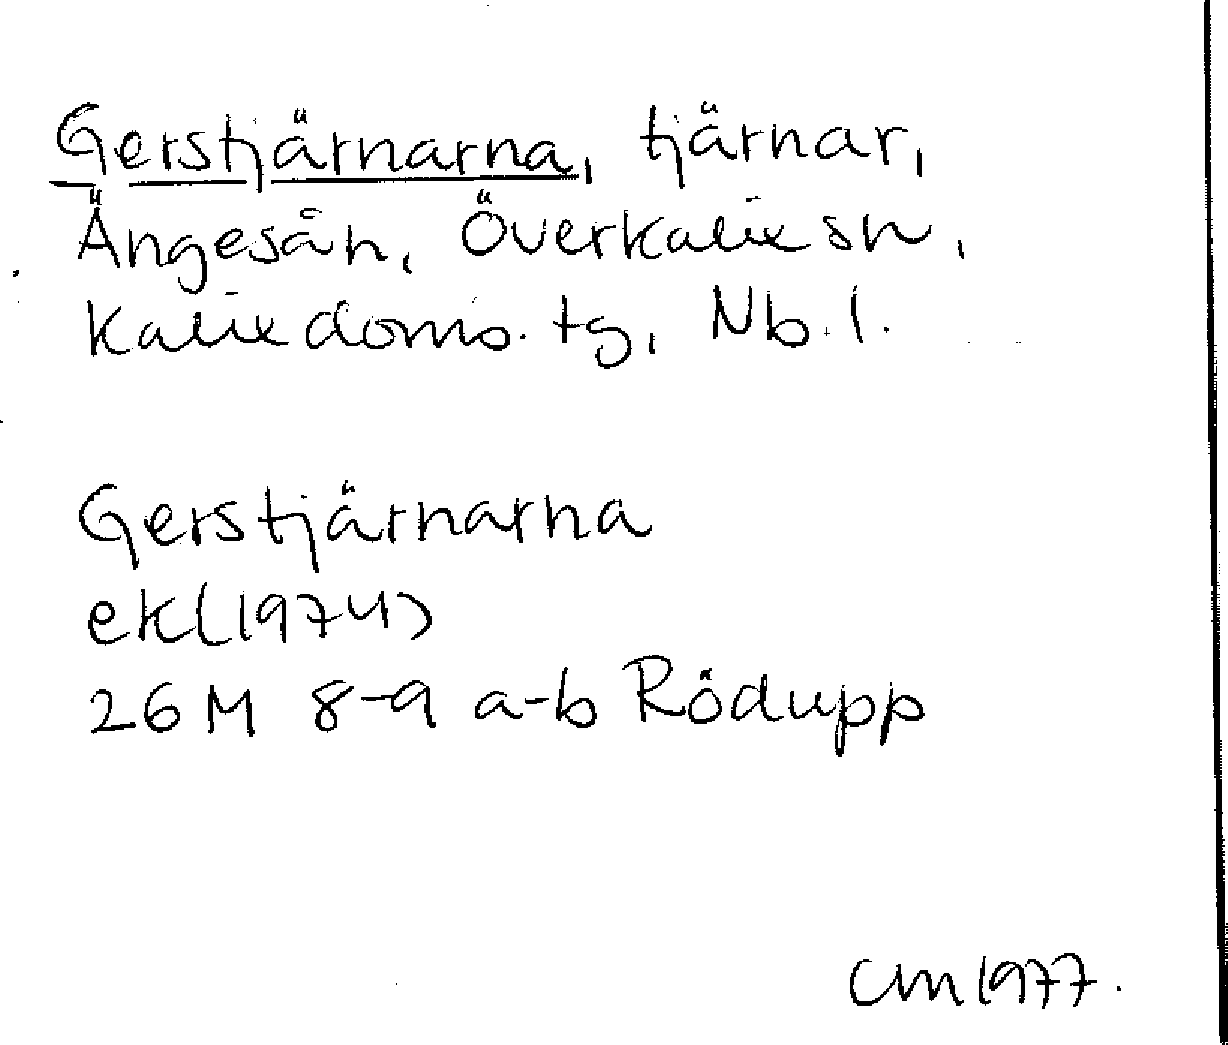 Gerstjärnarna, tjärnar,
Ängesån, Överkalix sn,
Kalix doms. tg, Nb. l.
Gerstjärnarna
ek(1974)
26 M 8-9 a-b Rödupp
CM 1977.